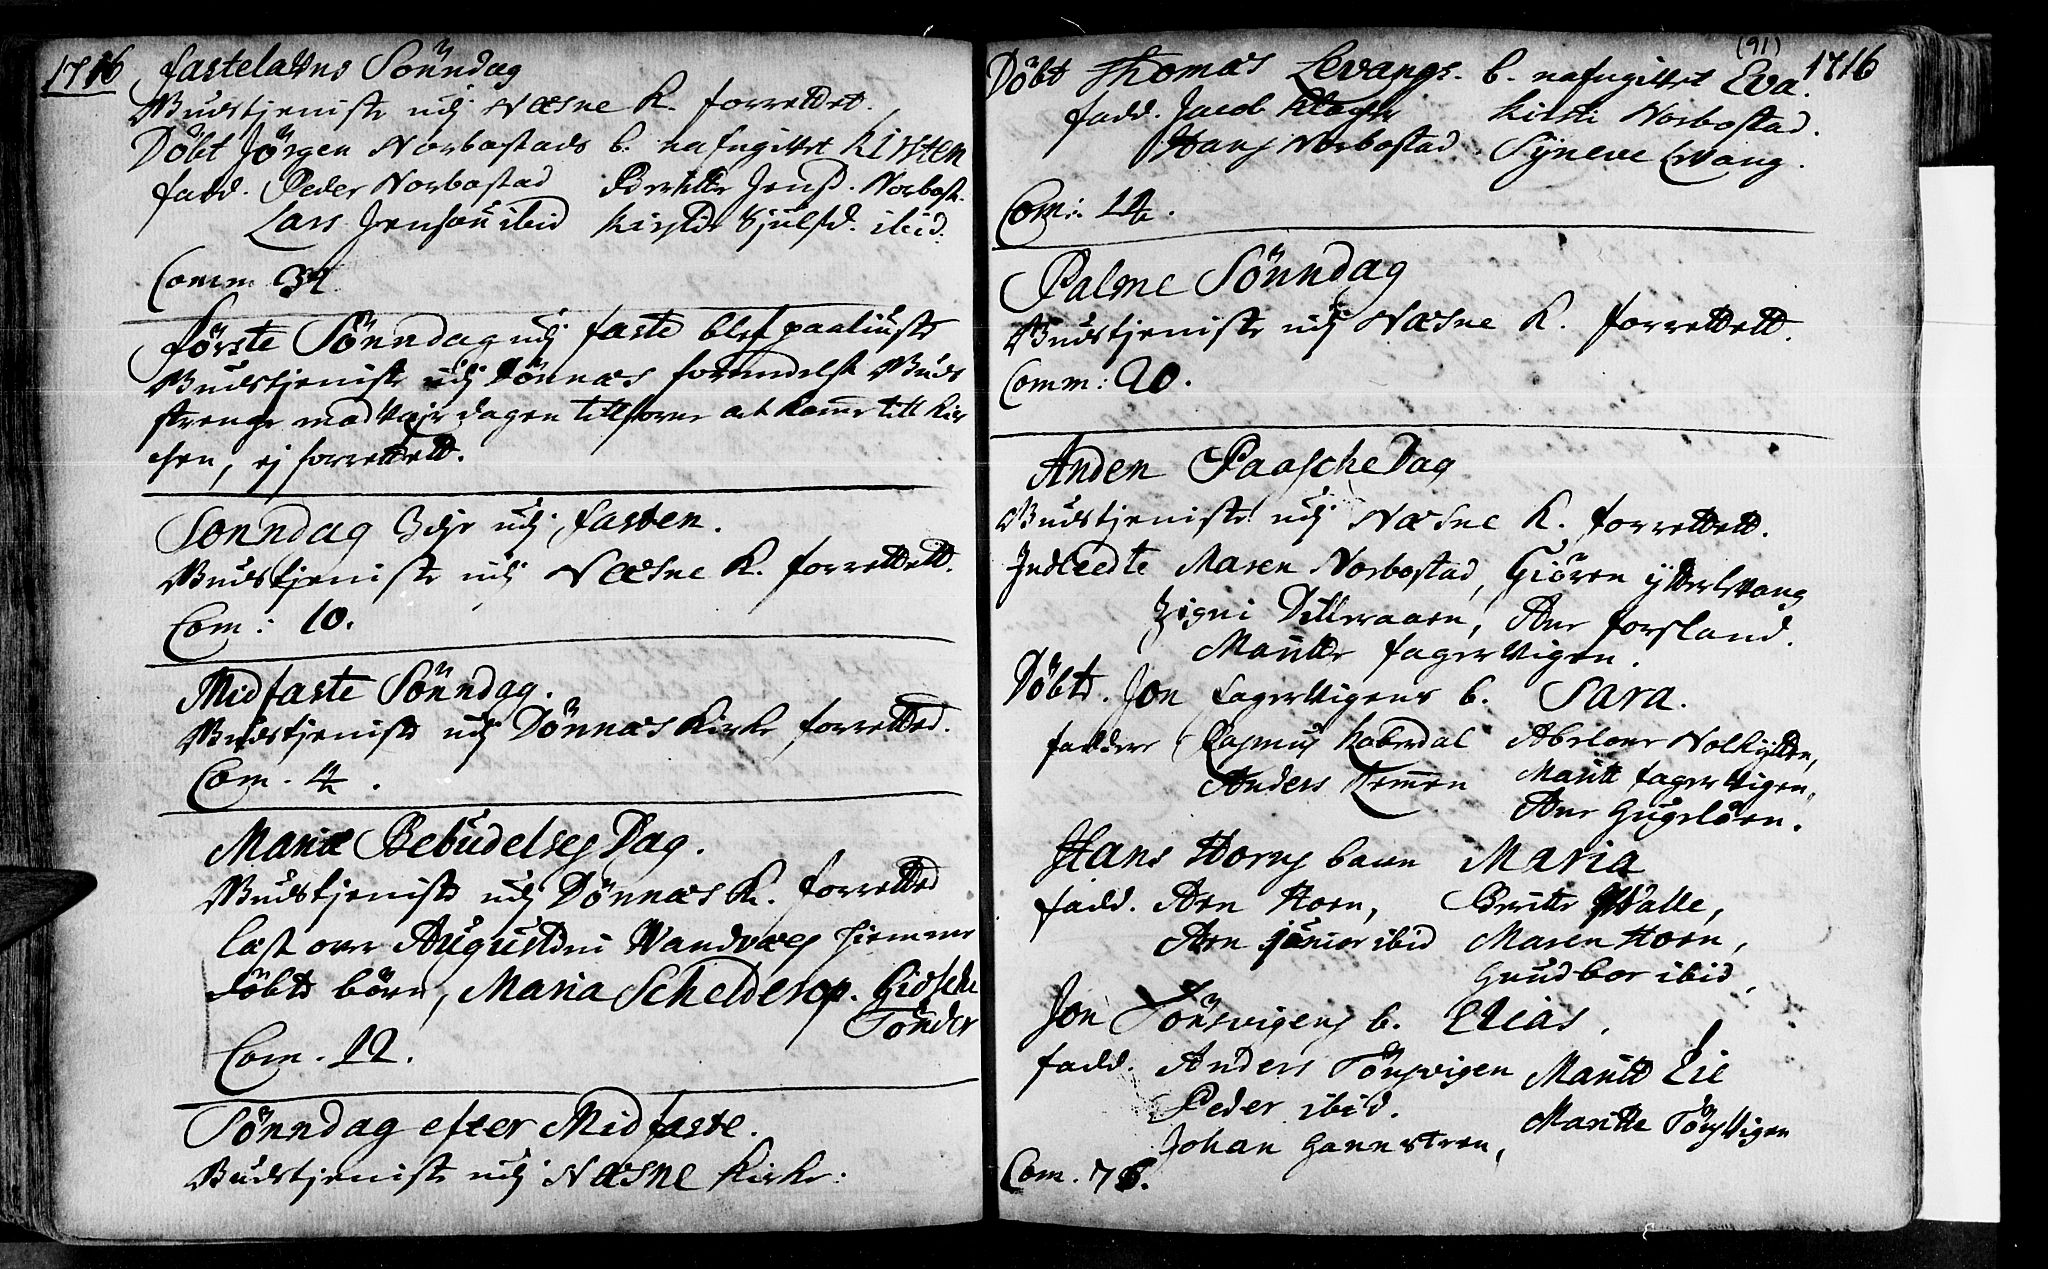 1716 fastelafns Sönndag
Gudstjeniste udj Næsne K. forrettet.
Döbt Jörgen Norbostads b. nafngifvet Kirsten
fadd. Peder Norbostad Berette Jensd. Norbost.
Lars Jensön ibid Kirste ibid.
Comm 34
förste Sönndag udj faste blef paaliuste
Gudstjeniste udj Dönnæs formedelst Guds
strenge mod dagen tilforne at komme till Kir
chen, ej forrettett.
Sönndag 3die udj fasten.
Gudstjeniste udj Næsne K. forrettett.
Com: 10.
Midfaste Sönndag.
Gudstjeniste udj Dönnæs Kirke forretted.
Com. 4.
Mariæ Bebudelses Dag.
Gudstjeniste udj Dönnæs K. forretted
last over Augustini Wandvæs hiemme
döbte börn, Maria Schelderop. Gidsche
Tönder
Com. 12.
Sönndag efter Midfaste.
Gudstjeniste udj Næsne Kirke.
(91)
Döbt Thomas Levangs. b. nafngifvet Eva. 1716
fadd. Jacob Kirsti Norbostad.
Hans Norbostad. Syneve Levang.
Com: 14.
Palme Sönndag
Gudstjeniste udj Næsne K. forrettett.
Comm: 20.
Anden Paasche Dag
Gudstjeniste udj Næsne K. forrettett.
Indleedte Maren Norbostad, Giören ytterLevang
Zigni Dilleraaen, Ane forsland.
Maritte fagerVigen.
Döbte. Jon fagerVigens b. Sara.
faddere Rasmus Haberdal Abelone
Anders Remmen Maritt fagerVigen,
Ane Hugelåen.
Hans Horns barn Maria
fadd. Arn Horn, Beritte Walle,
Arn junior ibid Maren Horn,
Gundbor ibid,
Jon Törsvigens b. Elias.
fadd. Anders Törsvigen Maritt Lie
Peder ibid. Maritte TörsVigen
Johan Hannestroen,
Com. 76.